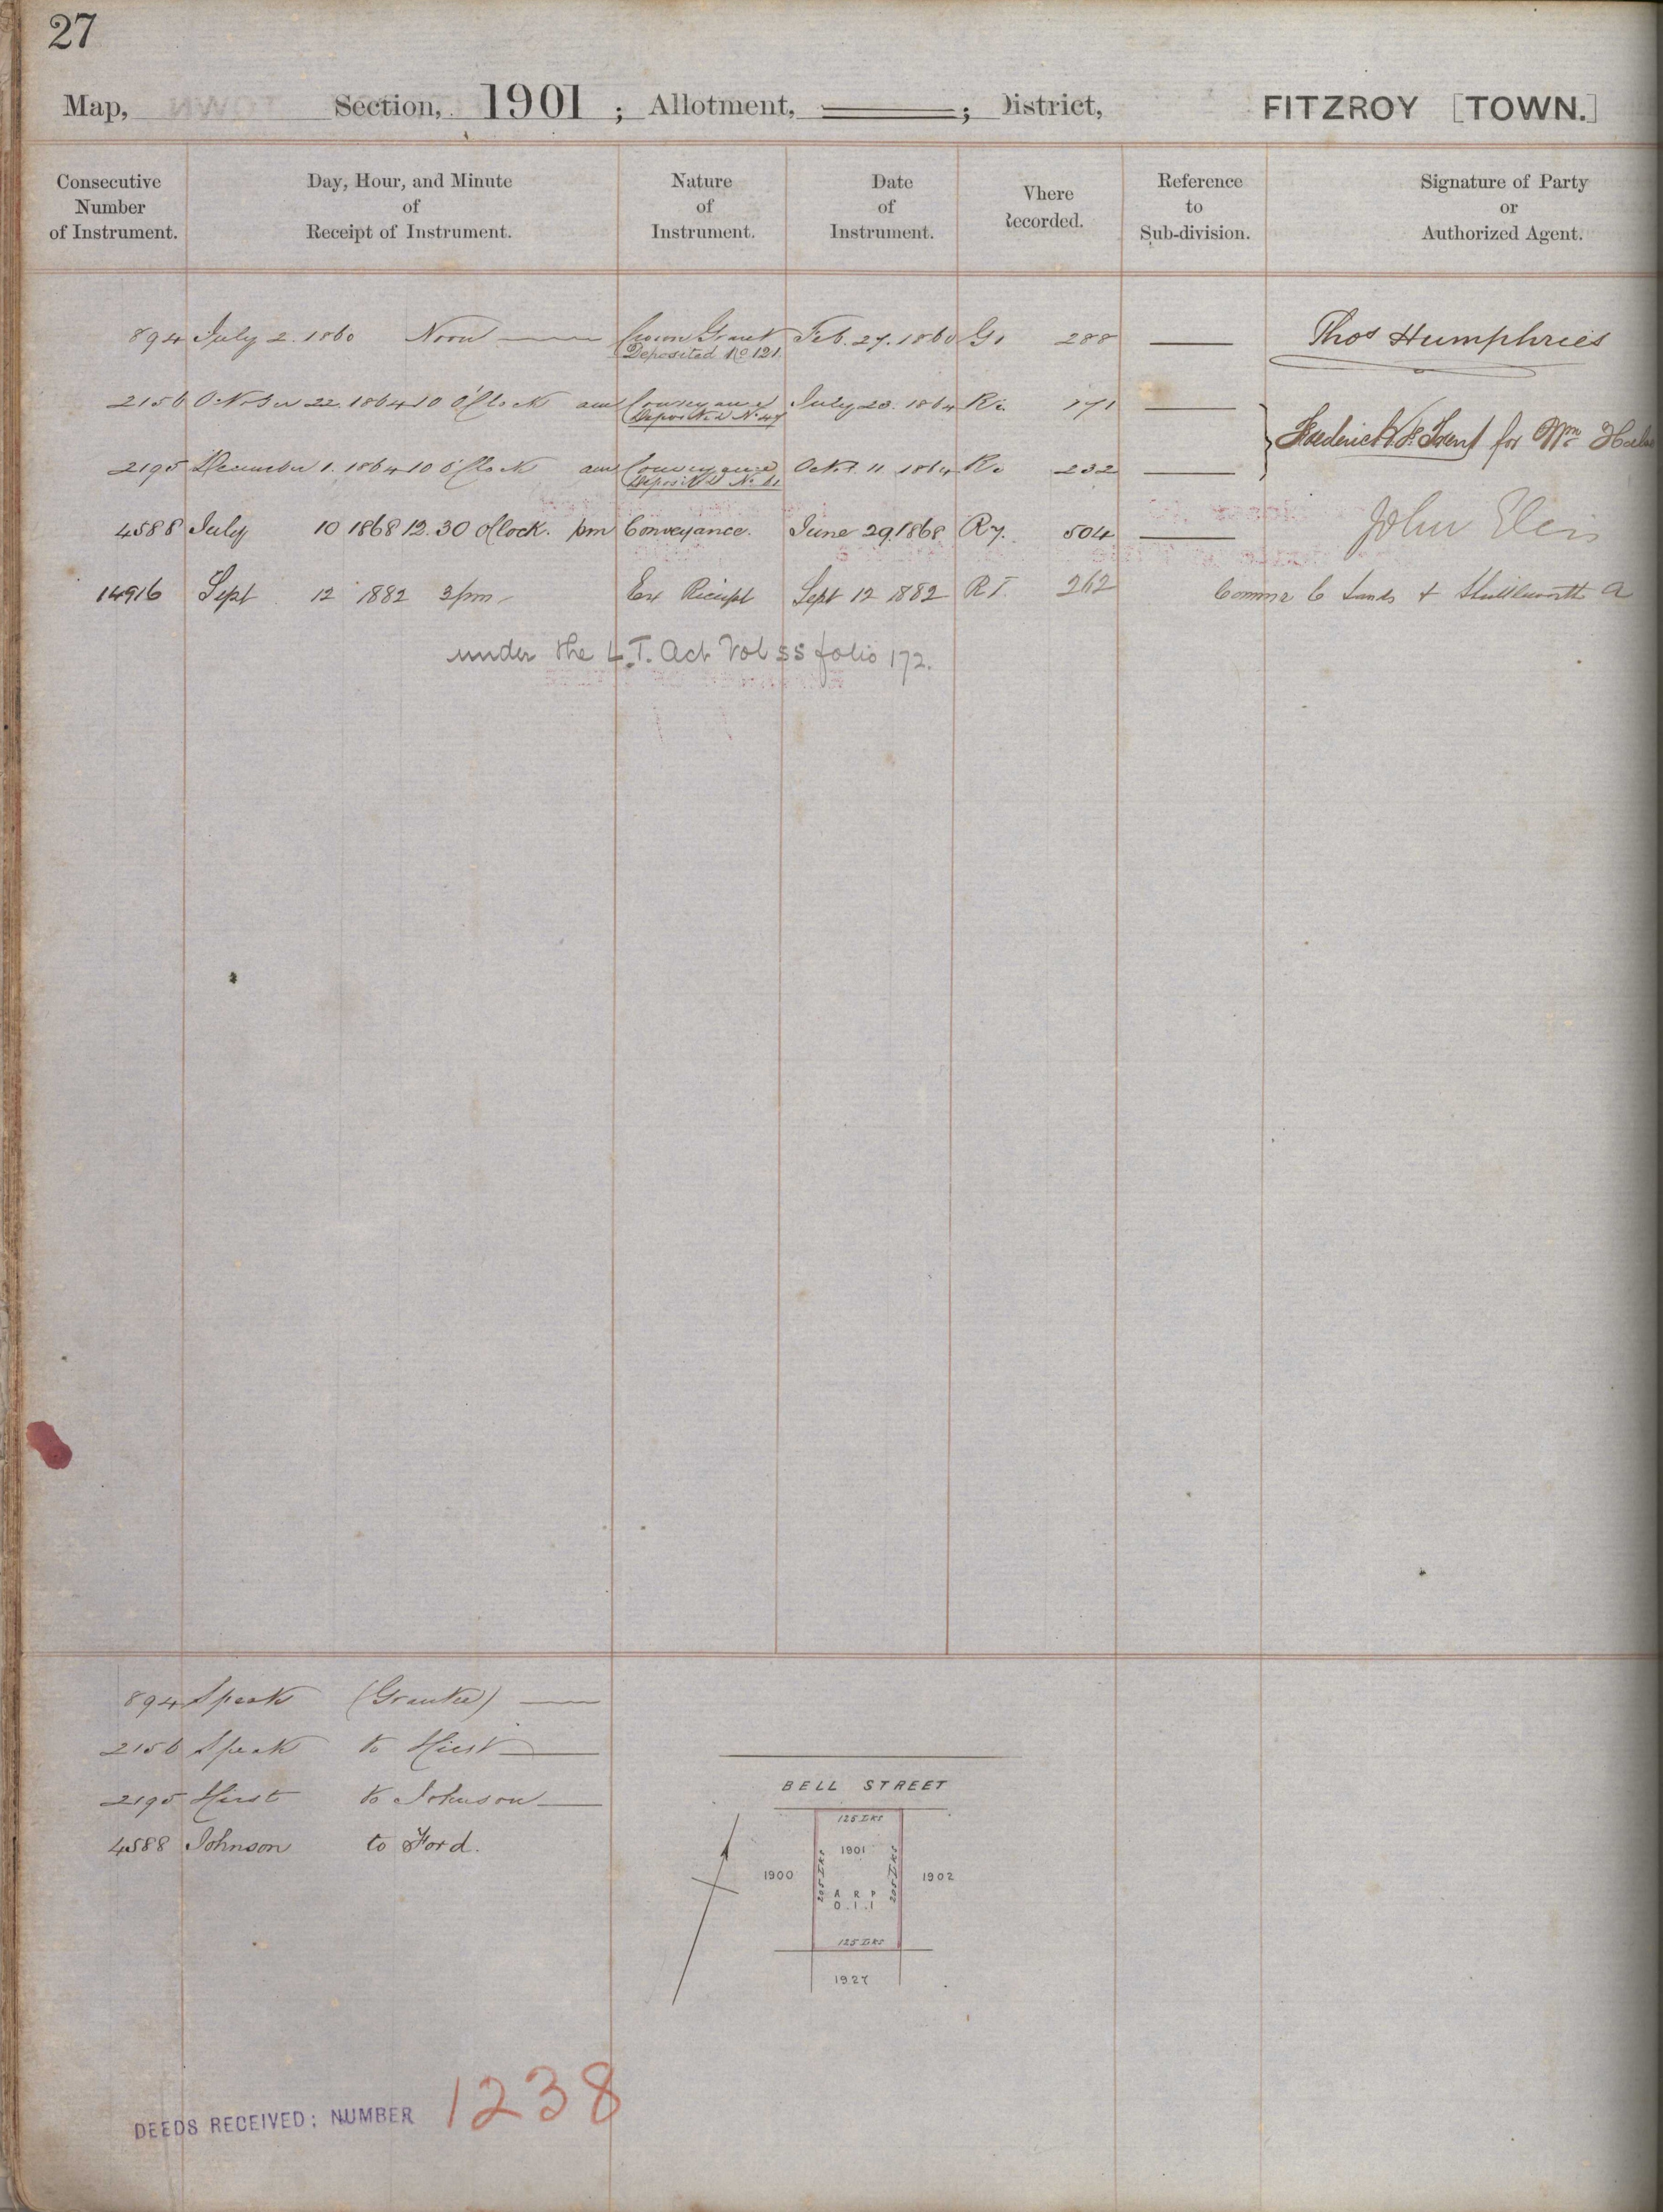 27
Map, Section, 1901 ; Allotment, ; District, FITZROY [TOWN.]
Consecutive Number of Instrument.
Day, Hour, and Minute of Receipt of Instrument.
Nature of Instrument.
Date of Instrument.
Where Recorded.
Reference to Sub-division.
Signature of Party or Authorized Agent.
894 July 2. 1860 Noon Crown Grant Feb. 27. 1860 G1 288 Thos Humphries
Deposited No 121.
2156 October 22. 1864 10 O'Clock am Conveyance July 20. 1864 R2 771
Deposited No 47
for Wm
2195 December 1. 1864 10 o'Clock am Conveyance Oct. 11 1864 R2 232
Deposited No 61
4588 July 10 1868 12.30 oClock. pm Conveyance. June 29. 1868 R7. 504 John
14916 Sept 12 1882 3 pm Ex Receipt Sept 12 1882 RT. 262 Commr C Lands & Shuttleworth A
under the L.T. Act Vol 55 folio 172.
894 Speak (Grantee)
2156 Speak to Hirst
2195 Hirst to Johnson
4588 Johnson to Ford.
BELL STREET
125 LKS
1901
1900 205 LKS 205 LKS 1902
A R P
0 . 1 . 1
125 LKS
1927
DEEDS RECEIVED; NUMBER 1238